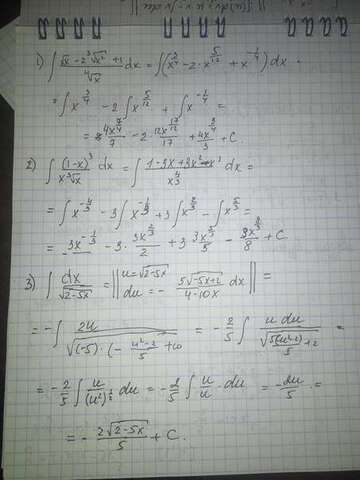 1) ∫ (√x - 2∛x² + 1)/∜x dx = ∫(x^(3/4) - 2·x^(5/12) + x^(-1/4)) dx =
= ∫ x^(3/4) - 2∫ x^(5/12) + ∫ x^(-1/4) =
= 4x^(7/4)/7 - 2·12x^(17/12)/17 + 4x^(3/4)/3 + C.
2) ∫ (1-x)³/(x∛x) dx = ∫ (1-3x+3x²-x³)/x^(4/3) dx =
= ∫ x^(-4/3) - 3∫ x^(-1/3) + 3∫ x^(2/3) - ∫ x^(5/3) =
= -3x^(-1/3) - 3·3x^(2/3)/2 + 3 3x^(5/3)/5 - 3x^(8/3)/8 + C
3) ∫ dx/√(2-5x) = || u=√(2-5x) du = - 5√(-5x+2)/(4-10x) dx || =
= -∫ 2u/√((-5)·(-(u²-2)/5 +10 = -2/5 ∫ u du/√(5(u²-2)/5 +2) =
= -2/5 ∫ u/(u²)^(1/2) du = -2/5 ∫ u/u · du = -2u/5 =
= - 2√(2-5x)/5 + C.